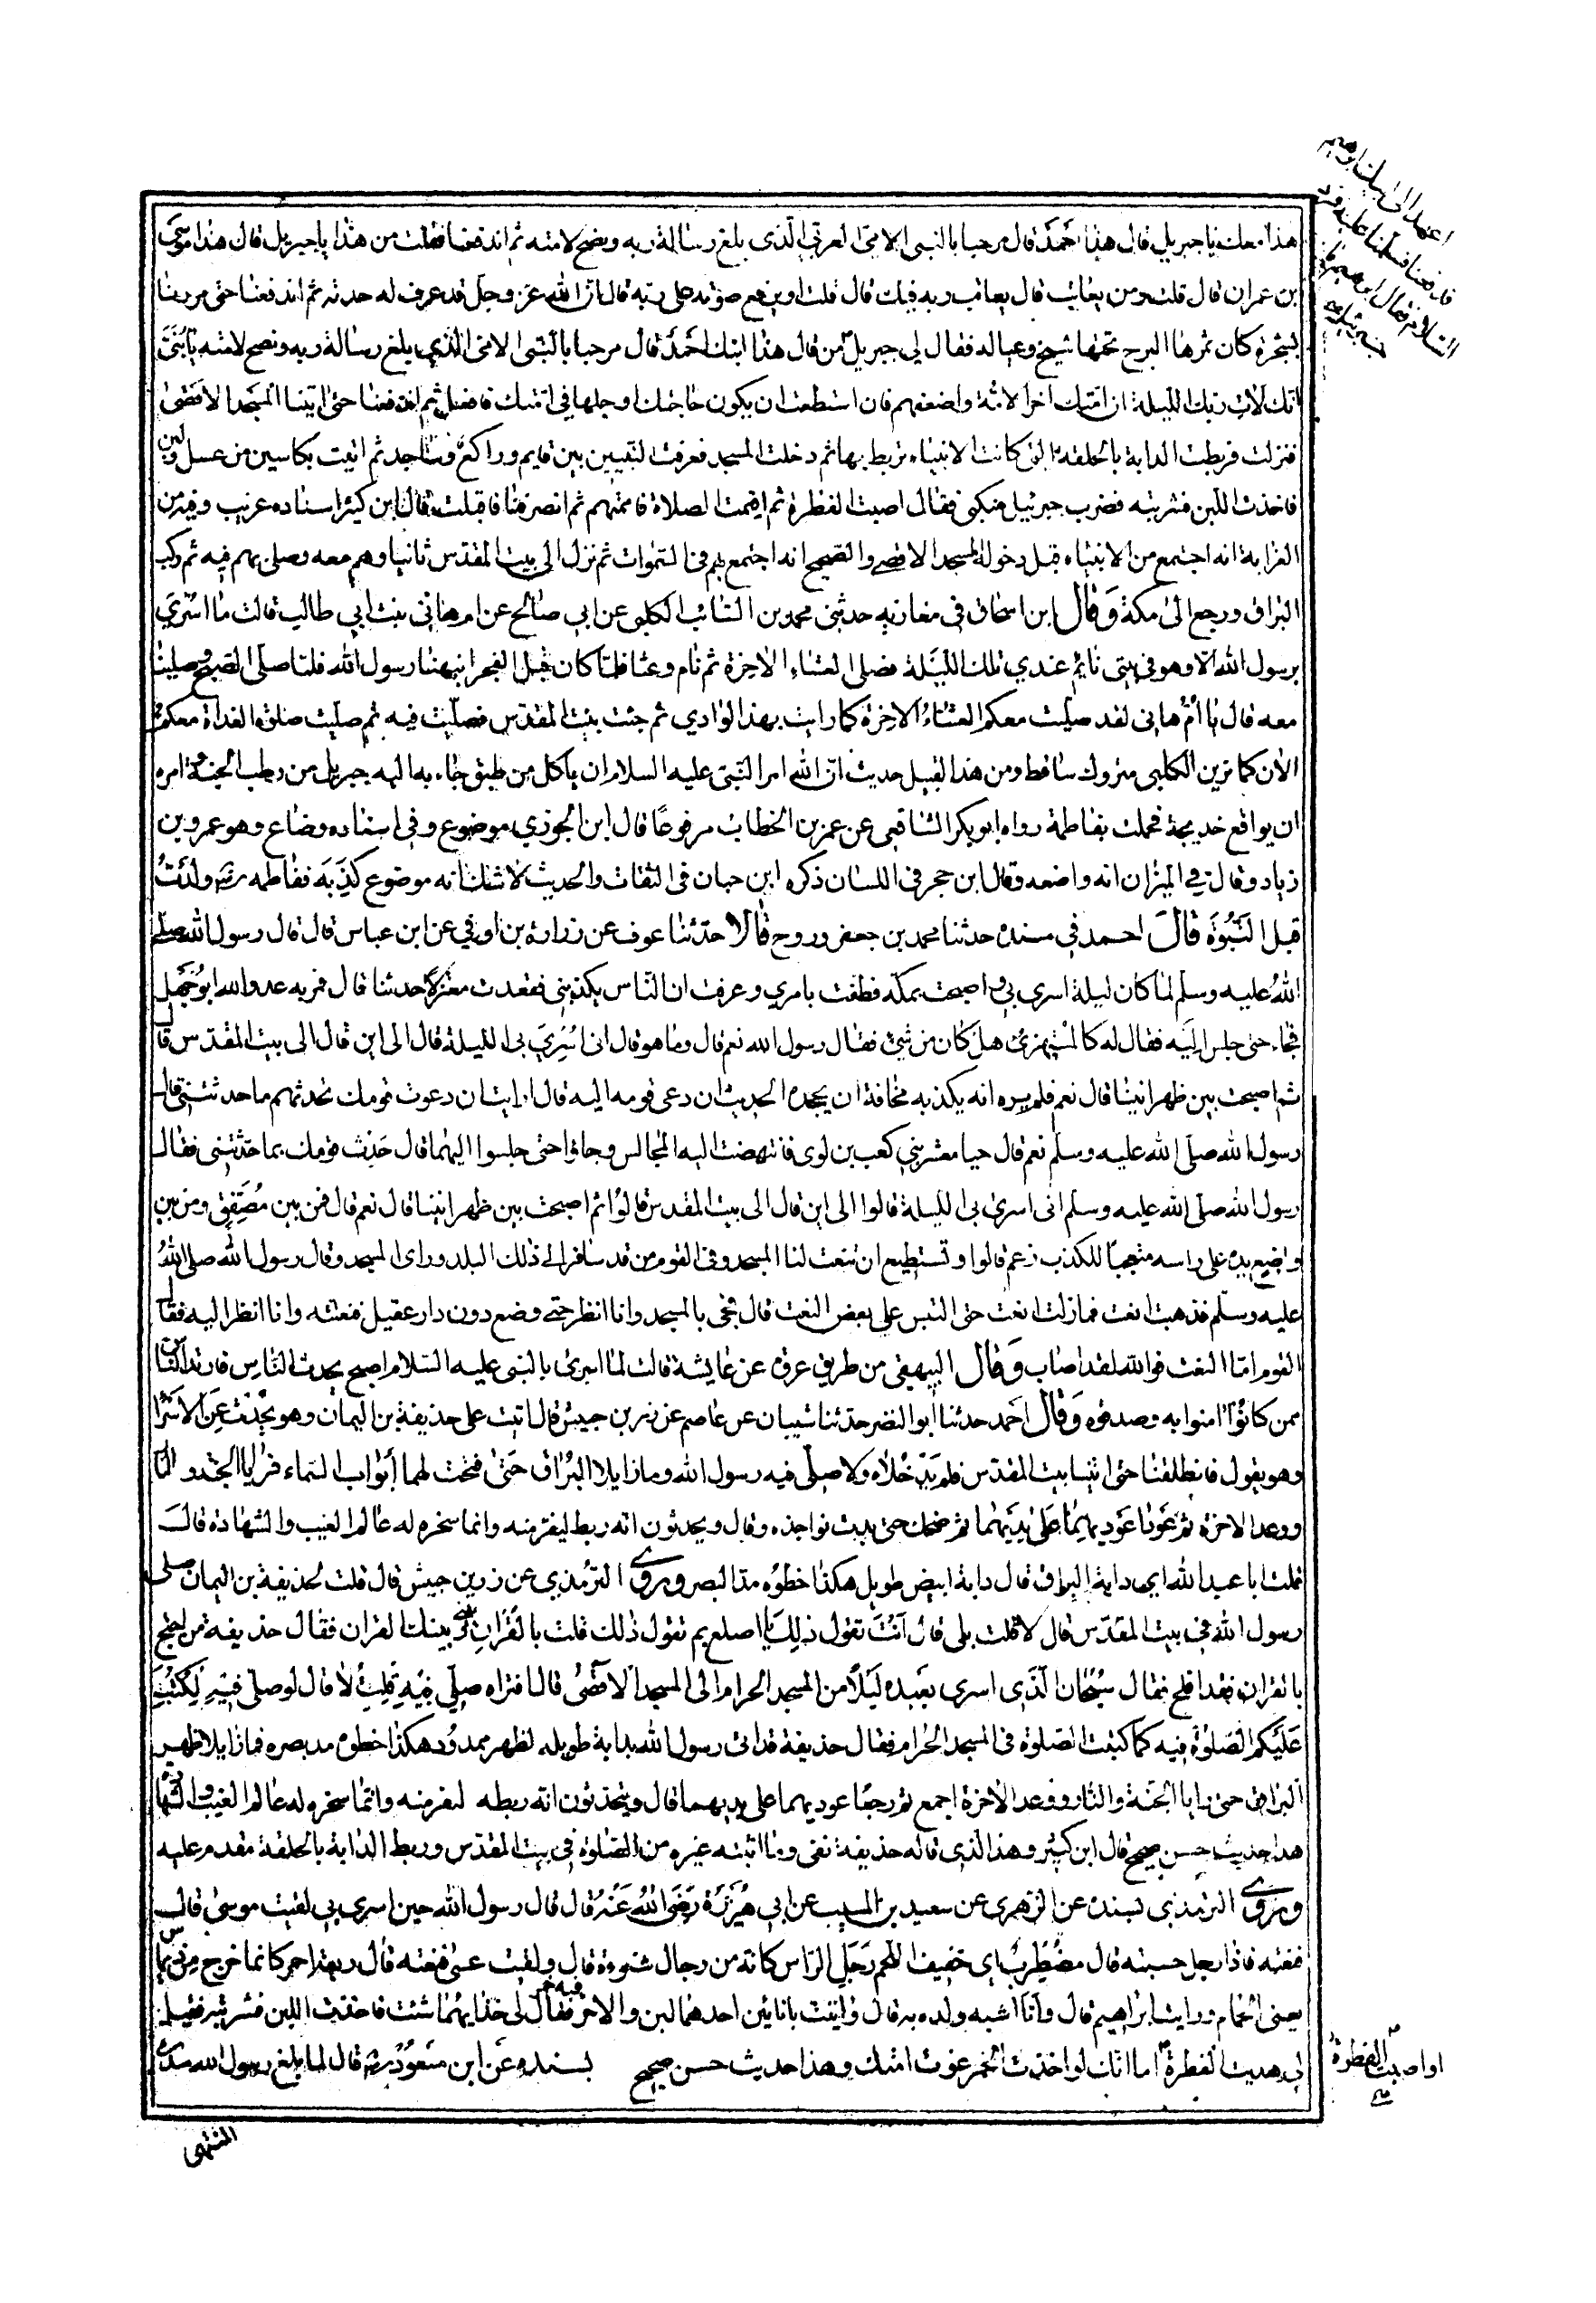 هذا معك يا جبريل قال هذا احمد قال مرحبا بالنبى الامى العربي الذى بلغ رسالة ربه ونصح لامته ثم اندفعنا فقلت من هذا يا جبريل قال هذا موسى
بن عمران قال قلت ومن يعاتب قال يعاتب ربه فيك قال قلت اويرفع صوته على ربه قال ان الله عز وجل قد عرف له حدته ثم اندفعنا حتى مررنا
بشجرة كان ثمرها السرح تحتها شيخ وعياله فقال لي جبريل من قال هذا ابنك احمد قال مرحبا بالنبى الامى الذي بلغ رسالة ربه ونصح لامته يا بنى
انك لاق ربك الليلة ان امتك اخر الامة واضعفهم فان استطعت ان يكون حاجتك او جلها في امتك فافعل ثم اندفعنا حتى اتينا المسجد الاقصى
فنزلت فربطت الدابة بالحلقة التى كانت الانبياء تربط بها ثم دخلت المسجد فعرفت النبيين بين قايم وراكع وساجد ثم اتيت بكاسين من عسل ولبن
فاخذت اللبن فشربته فضرب جبرئيل منكبى فقال اصبت الفطرة ثم اقيمت الصلاة فاممتهم ثم انصرفنا فاقبلت قال ابن كثير اسناده غريب وفيه من
الغرابة انه اجتمع من الانبياء قبل دخوله المسجد الاقصے والصحيح انه اجتمع بهم فى السموات ثم نزل الى بيت المقدس ثانيا وهم معه وصلى بهم فيه ثم ركب
البراق ورجع الى مكة وقال ابن اسحاق في مغازيه حدثنى محمد بن السائب الكلبى عن ابي صالح عن ام هانى بنت ابي طالب قالت ما اسري
برسول الله الا وهو في بيتى نائم عندي تلك الليلة فصلى العشاء الاخرة ثم نام ونمنا فلما كان قبل الفجر انبهنا رسول الله فلما صلى الصبح وصلينا
معه قال يا ام هانى لقد صليت معكم العشاء الاخرة كما رايت بهذا الوادي ثم جئت بيت المقدس فصليت فيه ثم صليت صلوة الغداة معكم
الان كما ترين الكلبى متروك ساقط ومن هذا القبيل حديث ان الله امر النبى عليه السلام ان ياكل من طبق جاء به اليه جبريل من رطب الجنة وامره
ان يواقع خديجة فحملت بفاطمة رواه ابو بكر الشافعى عن عمر بن الخطاب مرفوعا قال ابن الجوزي موضوع وفي اسناده وضاع وهو عمرو بن
زياد وقال في الميزان انه واضعه وقال ابن حجر في اللسان ذكره ابن حبان في الثقات والحديث لا شك انه موضوع كذبه ففاطمه رضه ولدت
قبل النبوة قال احمد في مسنده حدثنا محمد بن جعفر وروح قالا حدثنا عوف عن زرارة بن اوفي عن ابن عباس قال قال رسول الله صلى
الله عليه وسلم لما كان ليلة اسري بي واصبحت بمكة فظعت بامري وعرفت ان الناس يكذبنى فقعدت معتزلا حدثنا قال فمر به عدو الله ابو جهل
فجاء حتى جلس اليه فقال له كالمستهزئ هل كان من شئ فقال رسول الله نعم قال وما هو قال انى اسري بى الليلة قال الى اين قال الى بيت المقدس قال
ثم اصبحت بين ظهرانينا قال نعم فلم يره انه يكذبه مخافة ان يجحده الحديث ان دعى قومه اليه قال ارايت ان دعوت قومك تحدثهم ما حدثتنى قال
رسول الله صلى الله عليه وسلم نعم قال حيا معشر بني كعب بن لوى فانتهضت اليه المجالس وجاؤا حتى جلسوا اليهما قال حدث قومك بما حدثتنى فقال
رسول الله صلى الله عليه وسلم انى اسرى بى الليلة قالوا الى اين قال الى بيت المقدس قالوا ثم اصبحت بين ظهرانينا قال نعم قال فمن بين مصفق ومن بين
واضع يده على راسه متعجبا للكذب زعم قالوا وتستطيع ان تنعت لنا المسجد وفى القوم من قد سافر الى ذلك البلد وراى المسجد وقال رسول الله صلى الله
عليه وسلم فذهبت انعت فما زلت انعت حتى التبس على بعض النعت قال فجى بالمسجد وانا انظر حتى وضع دون دار عقيل فنعته وانا انظر اليه فقال
القوم اما النعت فوالله لقد اصاب وقال البيهقى من طريق عروة عن عايشة قالت لما اسرى بالنبى عليه السلام اصبح يحدث الناس فارتد الناس
ممن كانوا امنوا به وصدقوه وقال احمد حدثنا ابو النضر حدثنا شيبان عن عاصم عن زر بن حبيش قال اتيت على حذيفة بن اليمان وهو يحدث عن الاسرا
وهو يقول فانطلقنا حتى اتينا بيت المقدس فلم يدخلاه ولا صلى فيه رسول الله وما زايلا البراق حتى فتحت لهما ابواب السماء فرايا الجنة والنا
ووعد الاخرة ثم عودا عوديهما على بديهما ثم ضحك حتى بدت نواجذه وقال ويحدثون انه ربط ليفر منه وانما سخره له عالم الغيب والشهادة قال
قلت ابا عبد الله اى دابة البراق قال دابة ابيض طويل هكذا خطوه مد البصر وروے الترمذي عن زر بن حبيش قال قلت لحذيفة بن اليمان صلى
رسول الله في بيت المقدس قال لا قلت بلى قال انت تقول ذلك يا اصلع بم تقول ذلك قلت بالقران بينى وبينك القران فقال حذيفة من احتج
بالقران فقد افلح فقال سبحان الذى اسرى بعبده ليلا من المسجد الحرام الى المسجد الاقصى قال افتراه صلى فيه قلت لا قال لو صلى فيه لكتبت
عليكم الصلوة فيه كما كتبت الصلوة فى المسجد الحرام فقال حذيفة قد اتى رسول الله بدابة طويله الظهر ممدود هكذا خطوه مد بصره فما زايلا ظهر
البراق حتى رايا الجنة والنار ووعد الاخرة اجمع ثم رجعا عوديهما على بديهما قال ويتحدثون انه ربطه ليفر منه وانما سخره له عالم الغيب والشهادة
هذا حديث حسن صحيح قال ابن كثير وهذا الذى قاله حذيفة نفى وما اثبته غيره من الصلوة في بيت المقدس وربط الدابة بالحلقة مقدم عليه
وروے الترمذي بسنده عن الزهرى عن سعيد بن المسيب عن ابي هريرة رضى الله عنه قال قال رسول الله حين اسرى بي لقيت موسى قال
فنعته فاذا رجل حسبته قال مضطرب اى خفيف اللحم رجل الراس كانه من رجال شنوءة قال ولقيت عيسى فنعته قال ربعة احمر كانما خرج من ديماس
يعنى الحمام ورايت ابراهيم قال وانا اشبه ولده به قال واتيت باناءين احدهما لبن والاخر فيه خمر فقال لى خذ ايهما شئت فاخذت اللبن فشربته فقيل
لى هديت الفطرة اما انك لو اخذت الخمر غوت امتك وهذا حديث حسن صحيح بسنده عن ابن مسعود رضه قال لما بلغ رسول الله سدرة
او اصبت الفطرة
المنتهى